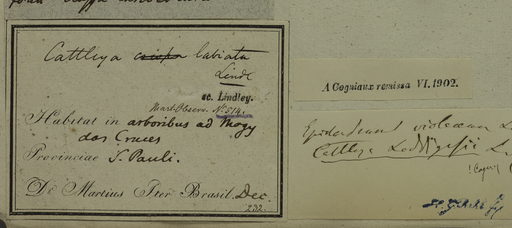 Cattleya crispa labiata
Lindl
sc. Lindley.
Mart. Observ. No. 514.
Habitat in arboribus ad Mogy
das Cruces
Provinciae S. Pauli.
De Martius Iter Brasil. Dec.
232.
A Cogniaux remissa VI. 1902.
Epidendrum violaceum
Cattleya Loddigesii